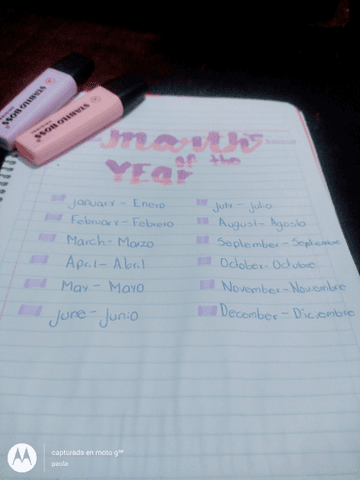 STABILO BOSS
STABILO BOSS
Month
of the
YEAR
January - Enero
February - Febrero
March - Marzo
April - Abril
May - Mayo
June - Junio
July - Julio
August - Agosto
September - Septiembre
October - Octubre
November - Noviembre
December - Diciembre
capturada en moto g
paula